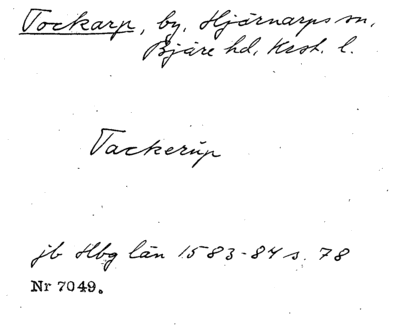 Tockarp, by, Hjärnarps sn,
Bjäre hd, Krst. l.
Tackerup
jb Hbg län 1583-84 s. 78
Nr 7049.